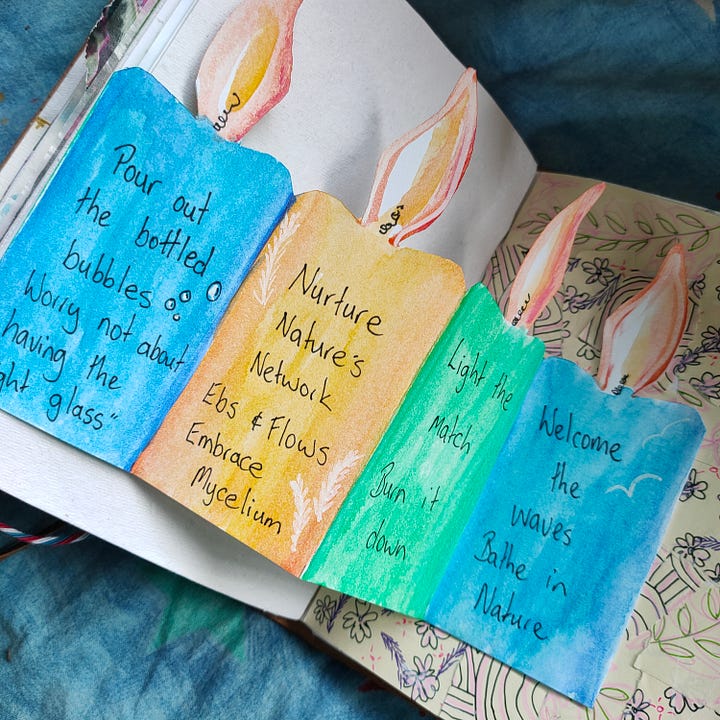 Pour out
the bottled
bubbles
Worry not about
having the
ght glass"
Nurture
Nature's
Network
Ebs & Flows
Embrace
Mycelium
Light the
match
Burn it
down
Welcome
the
waves
Bathe in
Nature